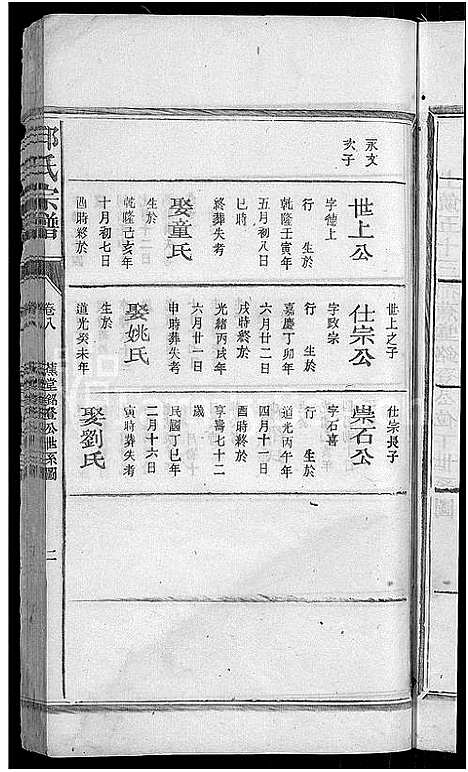 永文
次子
世上公
字德上
行 生於
乾隆壬寅年
五月初八日
巳時
終葬失考
娶童氏
生於
乾隆己亥年
十月初七日
酉時終於
世上之子
仕宗公
字政宗
行 生於
嘉慶丁卯年
六月廿二日
戌時終於
光緒丙戌年
六月廿一日
申時葬失考
娶姚氏
生於
道光癸未年
仕宗長子
崇石公
字石喜
行 生於
道光丙午年
四月十一日
酉時終於
享壽七十二
歲
民國丁巳年
二月十六日
寅時葬失考
娶劉氏
氏宗譜
卷八
公世系圖
二